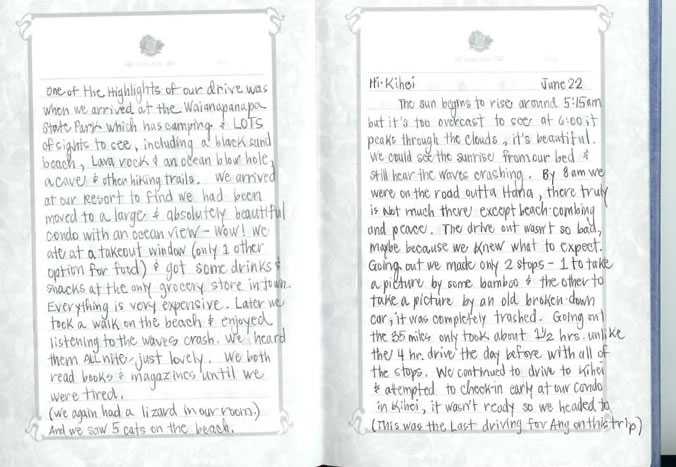 one of the Highlights of our drive was
when we arrived at the Waianapanapa
State Park which has camping & LOTS
of sights to see, including a black sand
beach, Lava rock & an ocean blow hole,
a cave & other hiking trails. We arrived
at our resort to find we had been
moved to a large & absolutely beautiful
condo with an ocean view - wow! We
ate at a takeout window (only 1 other
option for food) & got some drinks &
snacks at the only grocery store in town.
Everything is very expensive. Later we
took a walk on the beach & enjoyed
listening to the waves crash. We heard
them ALL nite - just lovely. We both
read books & magazines until we
were tired.
(we again had a lizard in our room.)
And we saw 5 cats on the beach.
Hi-Kihei June 22
The sun begins to rise around 5:15am
but it's too overcast to see at 6:00 it
peaks through the clouds, it's beautiful.
We could see the sunrise from our bed &
still hear the waves crashing. By 8am we
were on the road outta Hana, there truly
is Not much there except beach-combing
and peace. The drive out wasn't so bad,
maybe because we knew what to expect.
Going out we made only 2 stops - 1 to take
a picture by some bamboo & the other to
take a picture by an old broken-down
car, it was completely trashed. Going out
the 35 miles only took about 1 1/2 hrs. unlike
the 4 hr. drive the day before with all of
the stops. We continued to drive to Kihei
& attempted to check-in early at our condo
in Kihei, it wasn't ready so we headed to
(This was the Last driving for Ang on this trip)